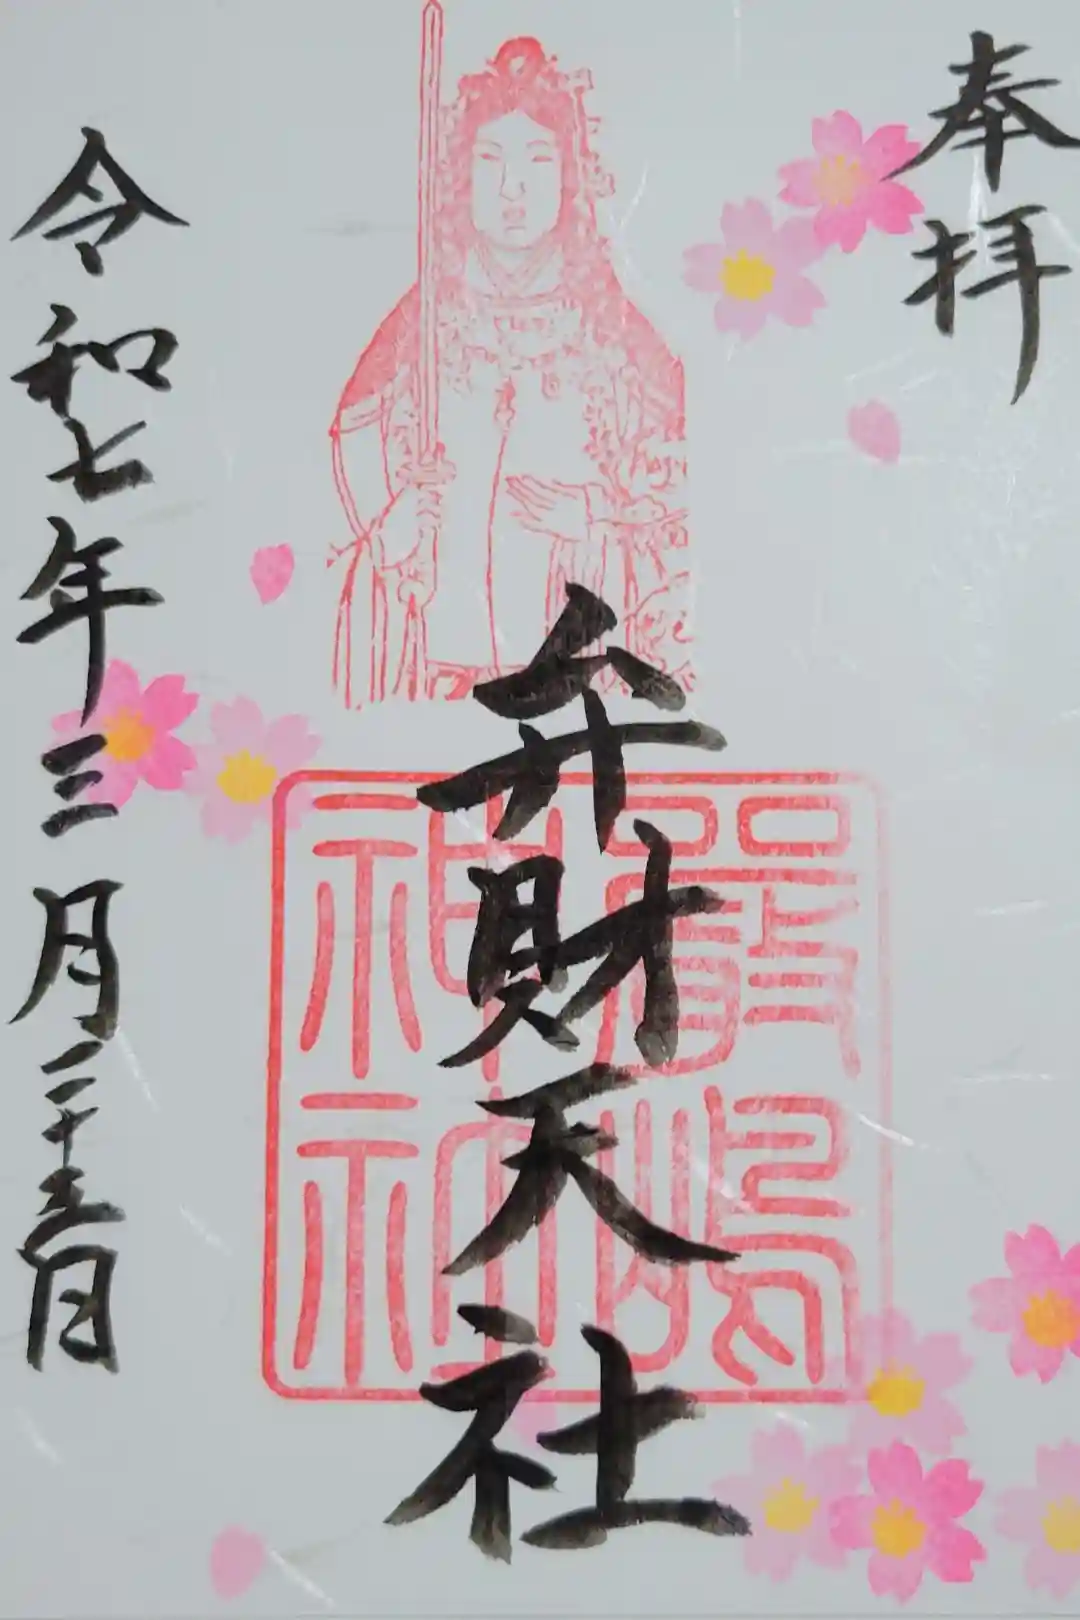 奉拝
弁財天社
厳嶋
神社
令和七年三月二十五日